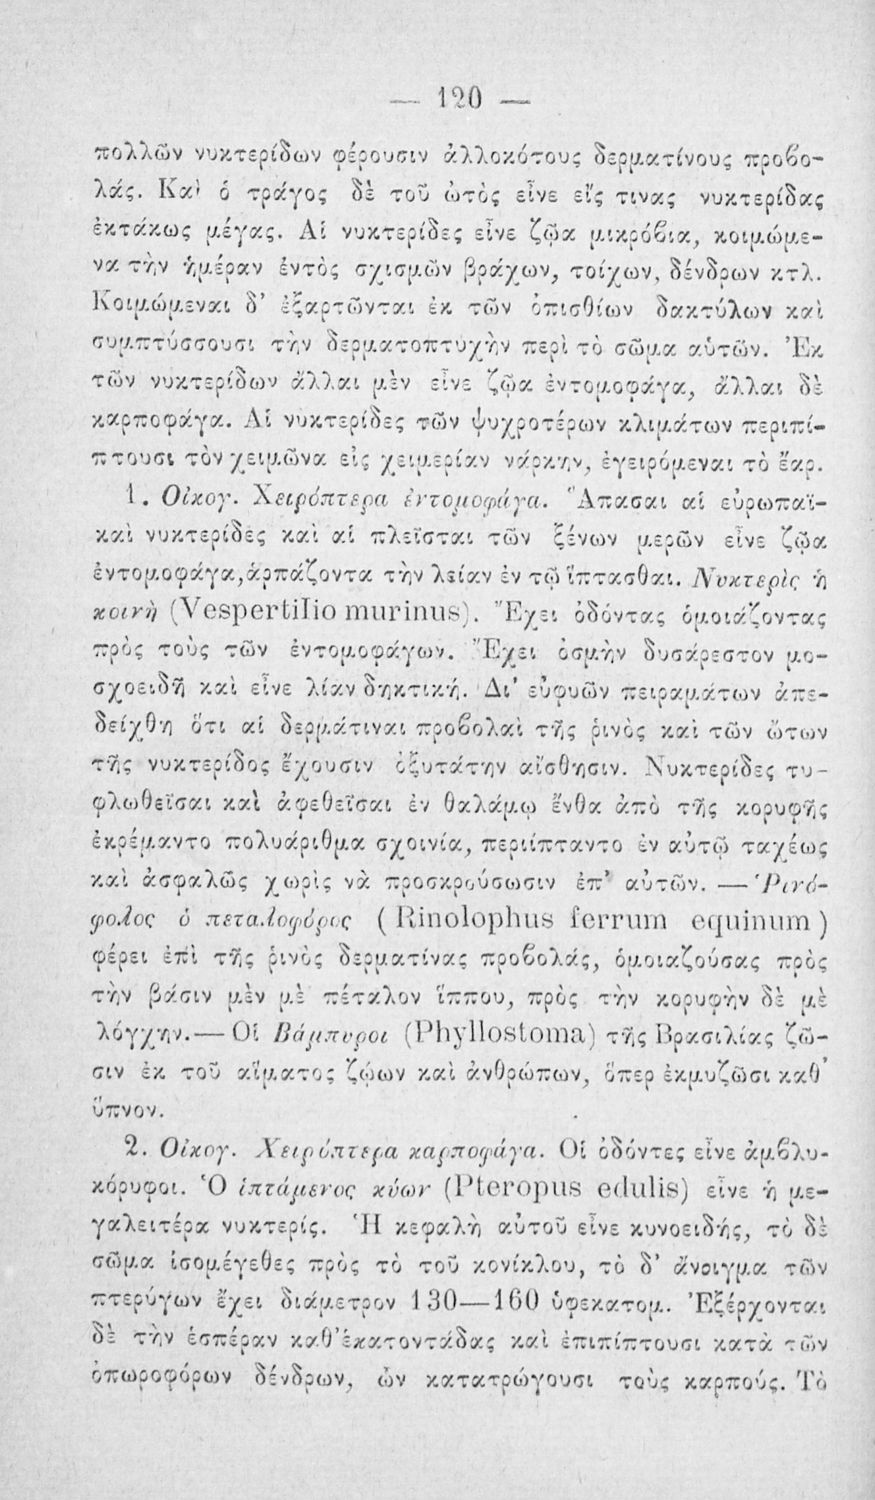 — 120 —
πολλῶν νυκτερίδων φέρουσιν ἀλλοκότους δερματίνους προϐο-
λάς. Καὶ ὁ τράγος δὲ τοῦ ὠτὸς εἶνε εἴς τινας νυκτερίδας
ἐκτάκως μέγας. Αἱ νυκτερίδες εἶνε ζῷα μικρόϐια, κοιμώμε-
να τὴν ἡμέραν ἐντὸς σχισμῶν βράχων, τοίχων, δένδρων κτλ.
Κοιμώμεναι δ' ἐξαρτῶνται ἐκ τῶν ὀπισθίων δακτύλων καὶ
συμπτύσσουσι τὴν δερματοπτυχὴν περὶ τὸ σῶμα αὐτῶν. Ἐκ
τῶν νυκτερίδων ἄλλαι μὲν εἶνε ζῷα ἐντομοφάγα, ἄλλαι δὲ
καρποφάγα. Αἱ νυκτερίδες τῶν ψυχροτέρων κλιμάτων περιπί-
πτουσι τὸν χειμῶνα εἰς χειμερίαν νάρκην, ἐγειρόμεναι τὸ ἔαρ.
1. Οἰκογ. Χειρόπτερα ἐντομοφάγα. Ἅπασαι αἱ εὐρωπαϊ-
καὶ νυκτερίδες καὶ αἱ πλεῖσται τῶν ξένων μερῶν εἶνε ζῷα
ἐντομοφάγα, ἁρπάζοντα τὴν λείαν ἐν τῷ ἵπτασθαι. Νυκτερὶς ἡ
κοινὴ (Vespertilio murinus). Ἔχει ὀδόντας ὁμοιάζοντας
πρὸς τοὺς τῶν ἐντομοφάγων. Ἔχει ὀσμὴν δυσάρεστον μο-
σχοειδῆ καὶ εἶνε λίαν δηκτική. Δι' εὐφυῶν πειραμάτων ἀπε-
δείχθη ὅτι αἱ δερμάτιναι προϐολαὶ τῆς ῥινὸς καὶ τῶν ὤτων
τῆς νυκτερίδος ἔχουσιν ὀξυτάτην αἴσθησιν. Νυκτερίδες τυ-
φλωθεῖσαι καὶ ἀφεθεῖσαι ἐν θαλάμῳ ἔνθα ἀπὸ τῆς κορυφῆς
ἐκρέμαντο πολυάριθμα σχοινία, περιίπταντο ἐν αὐτῷ ταχέως
καὶ ἀσφαλῶς χωρὶς νὰ προσκρούσωσιν ἐπ' αὐτῶν. — Ῥινό-
φολος ὁ πεταλοφόρος (Rinolophus ferrum equinum)
φέρει ἐπὶ τῆς ῥινὸς δερματίνας προϐολάς, ὁμοιαζούσας πρὸς
τὴν βάσιν μὲν μὲ πέταλον ἵππου, πρὸς τὴν κορυφὴν δὲ μὲ
λόγχην.— Οἱ Βάμπυροι (Phyllostoma) τῆς Βρασιλίας ζῶ-
σιν ἐκ τοῦ αἵματος ζῴων καὶ ἀνθρώπων, ὅπερ ἐκμυζῶσι καθ'
ὕπνον.
2. Οἰκογ. Χειρόπτερα καρποφάγα. Οἱ ὀδόντες εἶνε ἀμϐλυ-
κόρυφοι. Ὁ ἱπτάμενος κύων (Pteropus edulis) εἶνε ἡ με-
γαλειτέρα νυκτερίς. Ἡ κεφαλὴ αὐτοῦ εἶνε κυνοειδής, τὸ δὲ
σῶμα ἰσομέγεθες πρὸς τὸ τοῦ κονίκλου, τὸ δ' ἄνοιγμα τῶν
πτερύγων ἔχει διάμετρον 130—160 ὑφεκατομ. Ἐξέρχονται
δὲ τὴν ἑσπέραν καθ' ἑκατοντάδας καὶ ἐπιπίπτουσι κατὰ τῶν
ὀπωροφόρων δένδρων, ὧν κατατρώγουσι τοὺς καρπούς. Τὸ